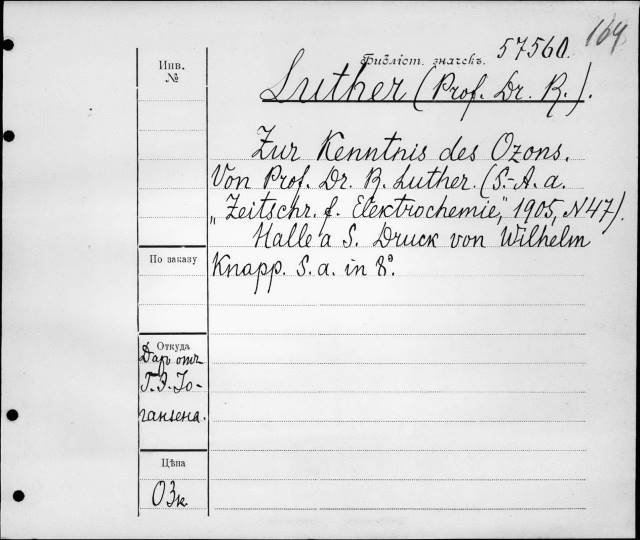 164
Библіот. значекъ. 57560.
Инв.
№
Luther (Prof. Dr. R.).
Zur Kenntnis des Ozons.
Von Prof. Dr. R. Luther. (S.-A. a.
„Zeitschr. f. Elektrochemie," 1905, N 47).
Halle a S. Druck von Wilhelm
Knapp. S. a. in 8°.
По заказу
Откуда
Даръ отъ
Г. Э. Іо-
гансена.
Цѣна
03к